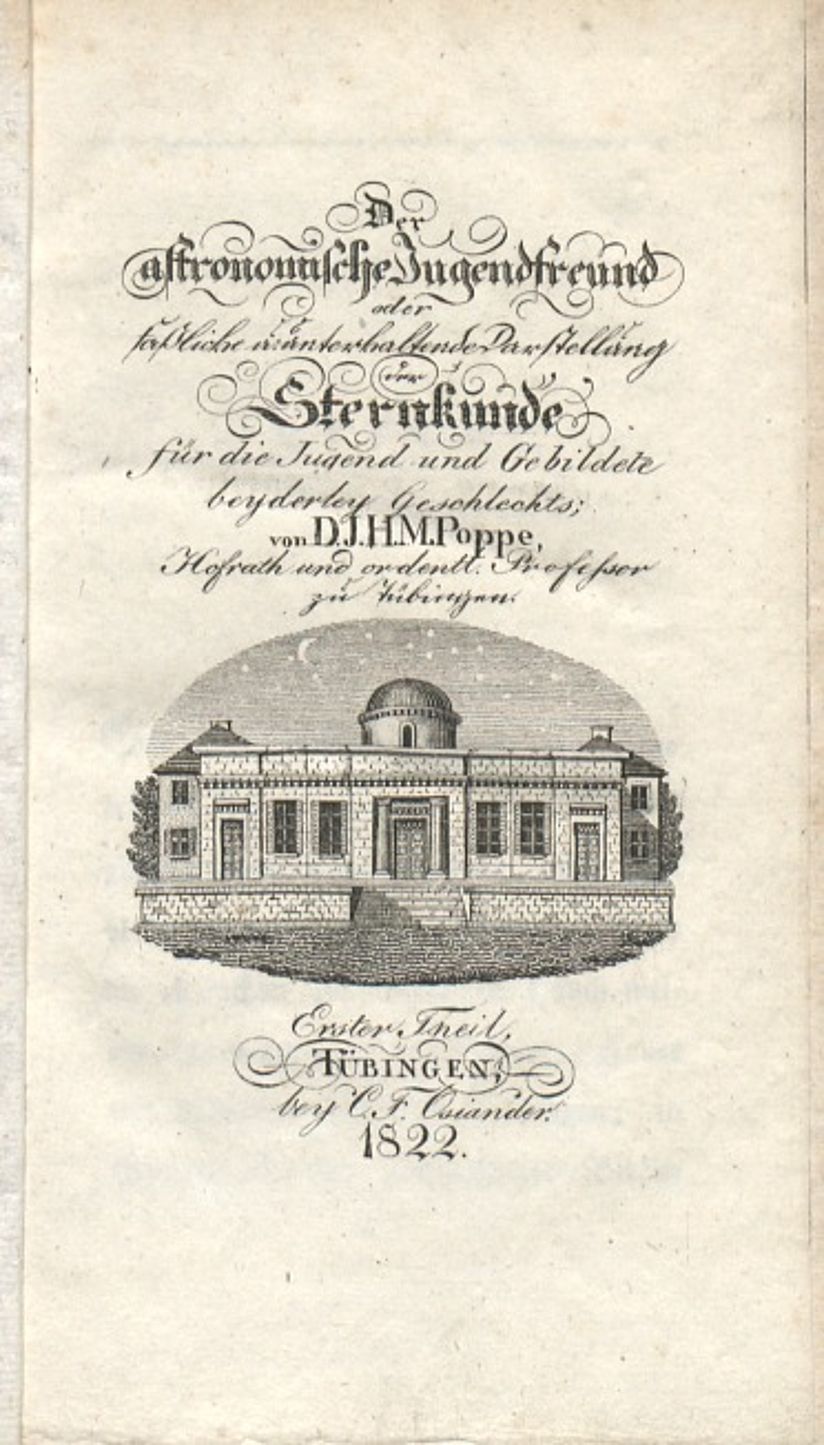 Der
astronomische Jugendfreund
oder
faßliche u: unterhaltende Darstellung
der
Sternkunde
für die Jugend und Gebildete
beyderley Geschlechts;
von D. J. H. M. Poppe,
Hofrath und ordentl. Professor
zu Tübingen.
Erster Theil,
TÜBINGEN,
bey C. F. Osiander.
1822.